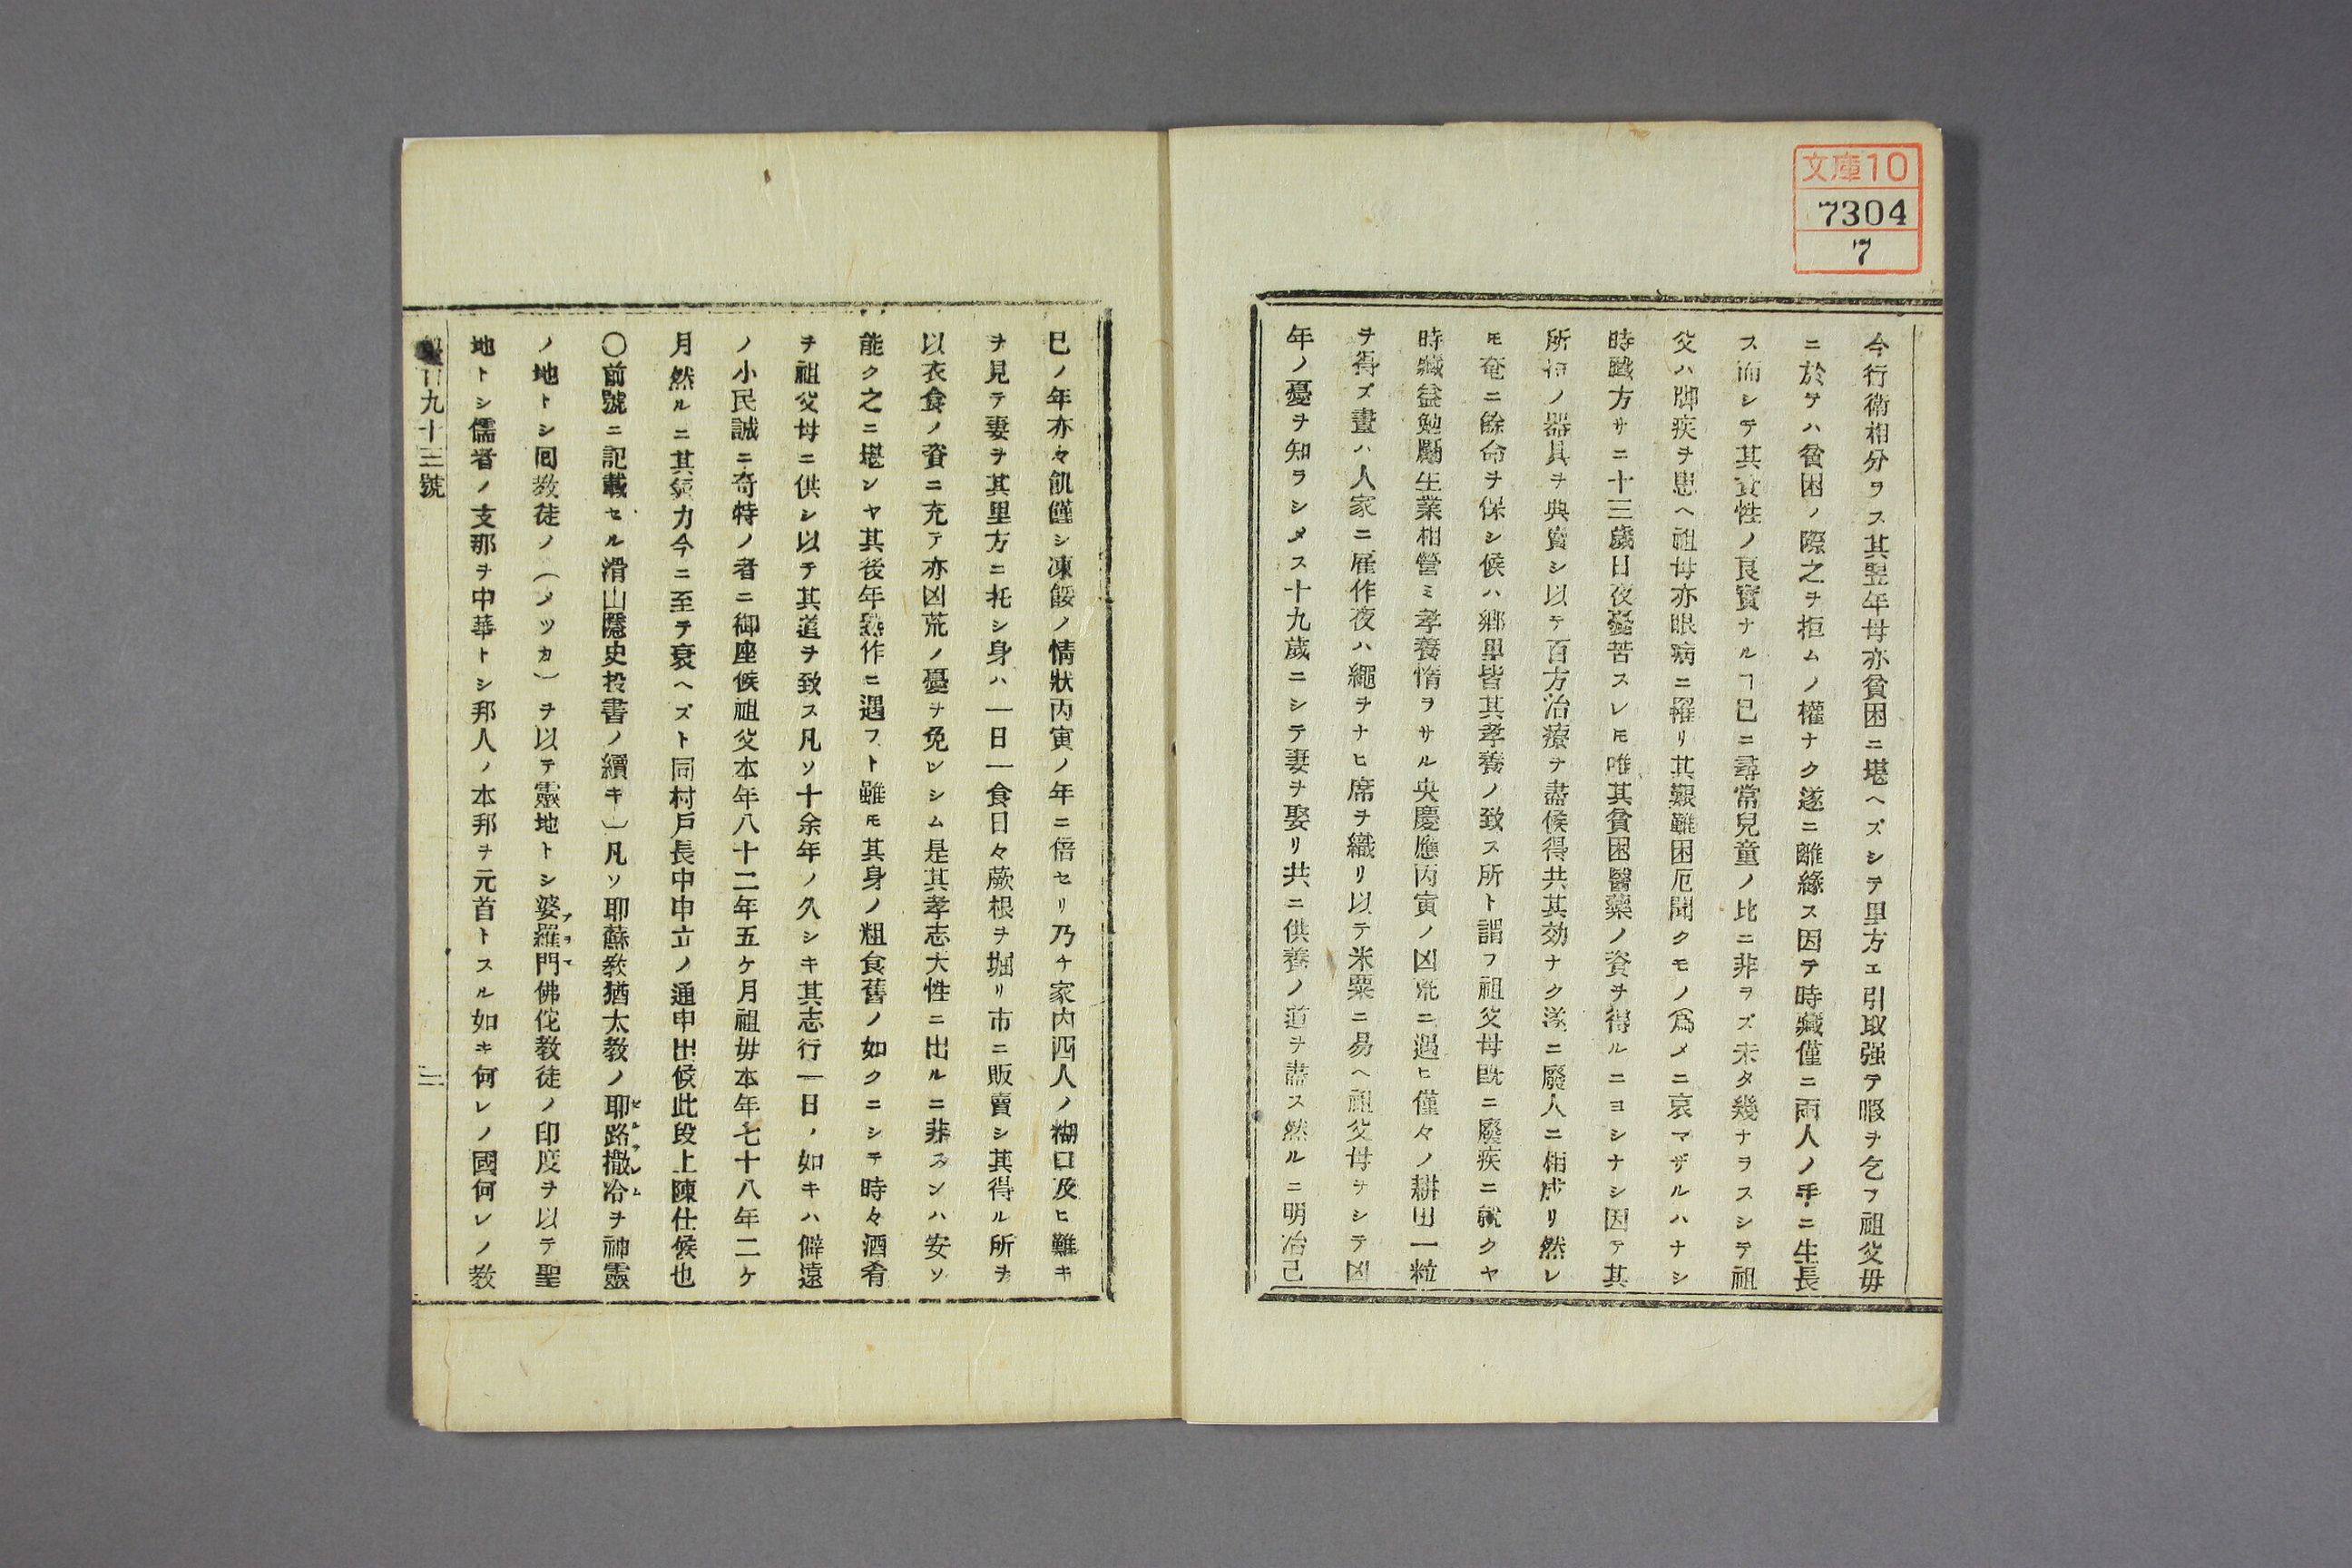 文庫10
7304
7
今行衛相分ラス其翌年母亦貧困ニ堪ヘズシテ里方エ引取强テ暇ヲ乞フ祖父毋
ニ於ケハ貧困ノ際之ヲ拒ムノ權ナク遂ニ離緣ス因テ時藏僅ニ兩人ノ手ニ生長
ス而シテ其資性ノ良實ナルヿ已ニ尋常兒童ノ比ニ非ラズ未タ幾ナラスシテ祖
父ハ脚疾ヲ患ヘ祖母亦眼病ニ罹リ其艱難困厄聞クモノ爲メニ哀マザルハナシ
時藏方サニ十三歲日夜憂苦スレ𪜈唯其貧困醫藥ノ資ヲ得ルニヨシナシ因テ其
所有ノ器具ヲ典賣シ以テ百方治療ヲ盡候得共其効ナク遂ニ廢人ニ相成リ然レ
𪜈奄ニ餘命ヲ保シ候ハ鄕里皆其孝養ノ致ス所ト謂フ祖父母既ニ廢疾ニ就クヤ
時藏益勉勵生業相營ミ孝養惰ヲサル央慶應丙寅ノ凶荒ニ遇ヒ僅々ノ耕田一粒
ヲ得ズ晝ハ人家ニ雇作夜ハ繩ヲナヒ席ヲ織リ以テ米粟ニ易ヘ祖父母ヲシテ凶
年ノ憂ヲ知ラシメス十九歲ニシテ妻ヲ娶リ共ニ供養ノ道ヲ盡ス然ルニ明治己
巳ノ年亦々飢饉シ凍餒ノ情狀丙寅ノ年ニ倍セリ乃チ家内四人ノ糊口及ヒ難キ
ヲ見テ妻ヲ其里方ニ托シ身ハ一日一食日々蕨根ヲ堀リ市ニ販賣シ其得ル所ヲ
以衣食ノ資ニ充テ亦凶荒ノ憂ヲ免レシム是其孝志大性ニ出ルニ非スンハ安ソ
能ク之ニ堪ンヤ其後年熟作ニ遇フト雖𪜈其身ノ粗食舊ノ如クニシテ時々酒肴
ヲ祖父母ニ供シ以テ其道ヲ致ス凡ソ十余年ノ久シキ其志行一日ノ如キハ僻遠
ノ小民誠ニ奇特ノ者ニ御座候祖父本年八十二年五ケ月祖毋本年七十八年二ケ
月然ルニ其力今ニ至テ衰ヘズト同村戶長中申立ノ通申出候此段上陳仕候也
〇前號ニ記載セル滑山隱史投書ノ續キ〕凡ソ耶蘇敎猶太敎ノ耶路撒冷ヲ神靈
ノ地トシ回敎徒ノ（メッカ）ヲ以テ靈地トシ婆羅門佛佗敎徒ノ印度ヲ以テ聖
地トシ儒者ノ支那ヲ中華トシ邦人ノ本邦ヲ元首トスル如キ何レノ國何レノ敎
百九十三號
二